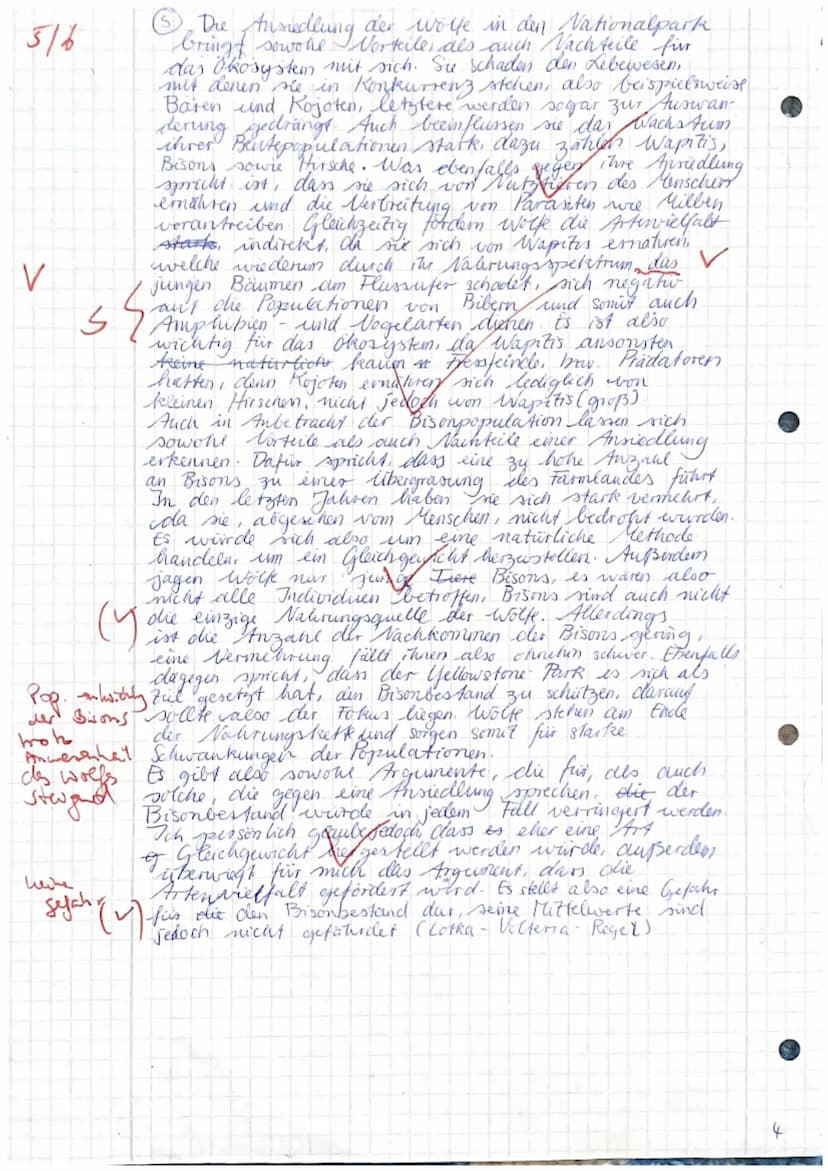 5/6
⑤ Die Ansiedlung der Wölfe in den Nationalpark
bringt sowohl Vorteile, als auch Nachteile für
das Ökosystem mit sich. Sie schaden den Lebewesen,
mit denen sie in Konkurrenz stehen, also beispielsweise
Bären und Kojoten, letztere werden sogar zur Auswan-
derung gedrängt. Auch beeinflussen sie das Wachstum
ihrer Beutepopulationen stark, dazu zählen Wapitis,
Bisons sowie Hirsche. Was ebenfalls gegen ihre Ansiedlung
spricht ist, dass sie sich von Nutztieren des Menschen
ernähren und die Verbreitung von Parasiten wie Milben
vorantreiben. Gleichzeitig fördern Wölfe die Artenvielfalt
stark, indirekt, da sie sich von Wapitis ernähren,
welche wiederum durch ihr Nahrungsspektrum, das
jungen Bäumen am Flussufer schadet, sich negativ
auf die Populationen von Bibern und somit auch
Amphibien- und Vogelarten dienen. Es ist also
wichtig für das Ökosystem, da Wapitis ansonsten
keine natürlich kaum Fressfeinde, bzw. Prädatoren
hätten, denn Kojoten ernähren sich lediglich von
kleinen Hirschen, nicht jedoch von Wapitis (groß)
Auch in Anbetracht der Bisonpopulation lassen sich
sowohl Vorteile als auch Nachteile einer Ansiedlung
erkennen. Dafür spricht, dass eine zu hohe Anzahl
an Bisons zu einer Übergrasung des Farmlandes führt.
In den letzten Jahren haben sie sich stark vermehrt,
da sie, abgesehen vom Menschen, nicht bedroht wurden.
Es würde sich also um eine natürliche Methode
handeln, um ein Gleichgewicht herzustellen. Außerdem
jagen Wölfe nur junge Tiere Bisons, es wären also
nicht alle Individuen betroffen, Bisons sind auch nicht
die einzige Nahrungsquelle der Wölfe. Allerdings
ist die Anzahl der Nachkommen der Bisons gering,
eine Vermehrung fällt ihnen also ohnehin schwer. Ebenfalls
dagegen spricht, dass der Yellowstone Park es sich als
Ziel gesetzt hat, den Bisonbestand zu schützen, darauf
sollte also der Fokus liegen. Wölfe stehen am Ende
der Nahrungskette und sorgen somit für starke
Schwankungen der Populationen.
Es gibt also sowohl Argumente, die für, als auch
solche, die gegen eine Ansiedlung sprechen, die der
Bisonbestand würde in jedem Fall verringert werden.
Ich persönlich glaube jedoch dass es eher eine Art
Gleichgewicht hergestellt werden würde, außerdem
überwiegt für mich das Argument, dass die
Artenvielfalt gefördert wird. Es stellt also eine Gefahr
für die den Bisonbestand dar, seine Mittelwerte sind
jedoch nicht gefährdet (Lotka-Volterra-Regel)
S
Pop.
der Bisons
trotz
Anwesenheit
des Wolfes
steigend
keine
Gefahr
4